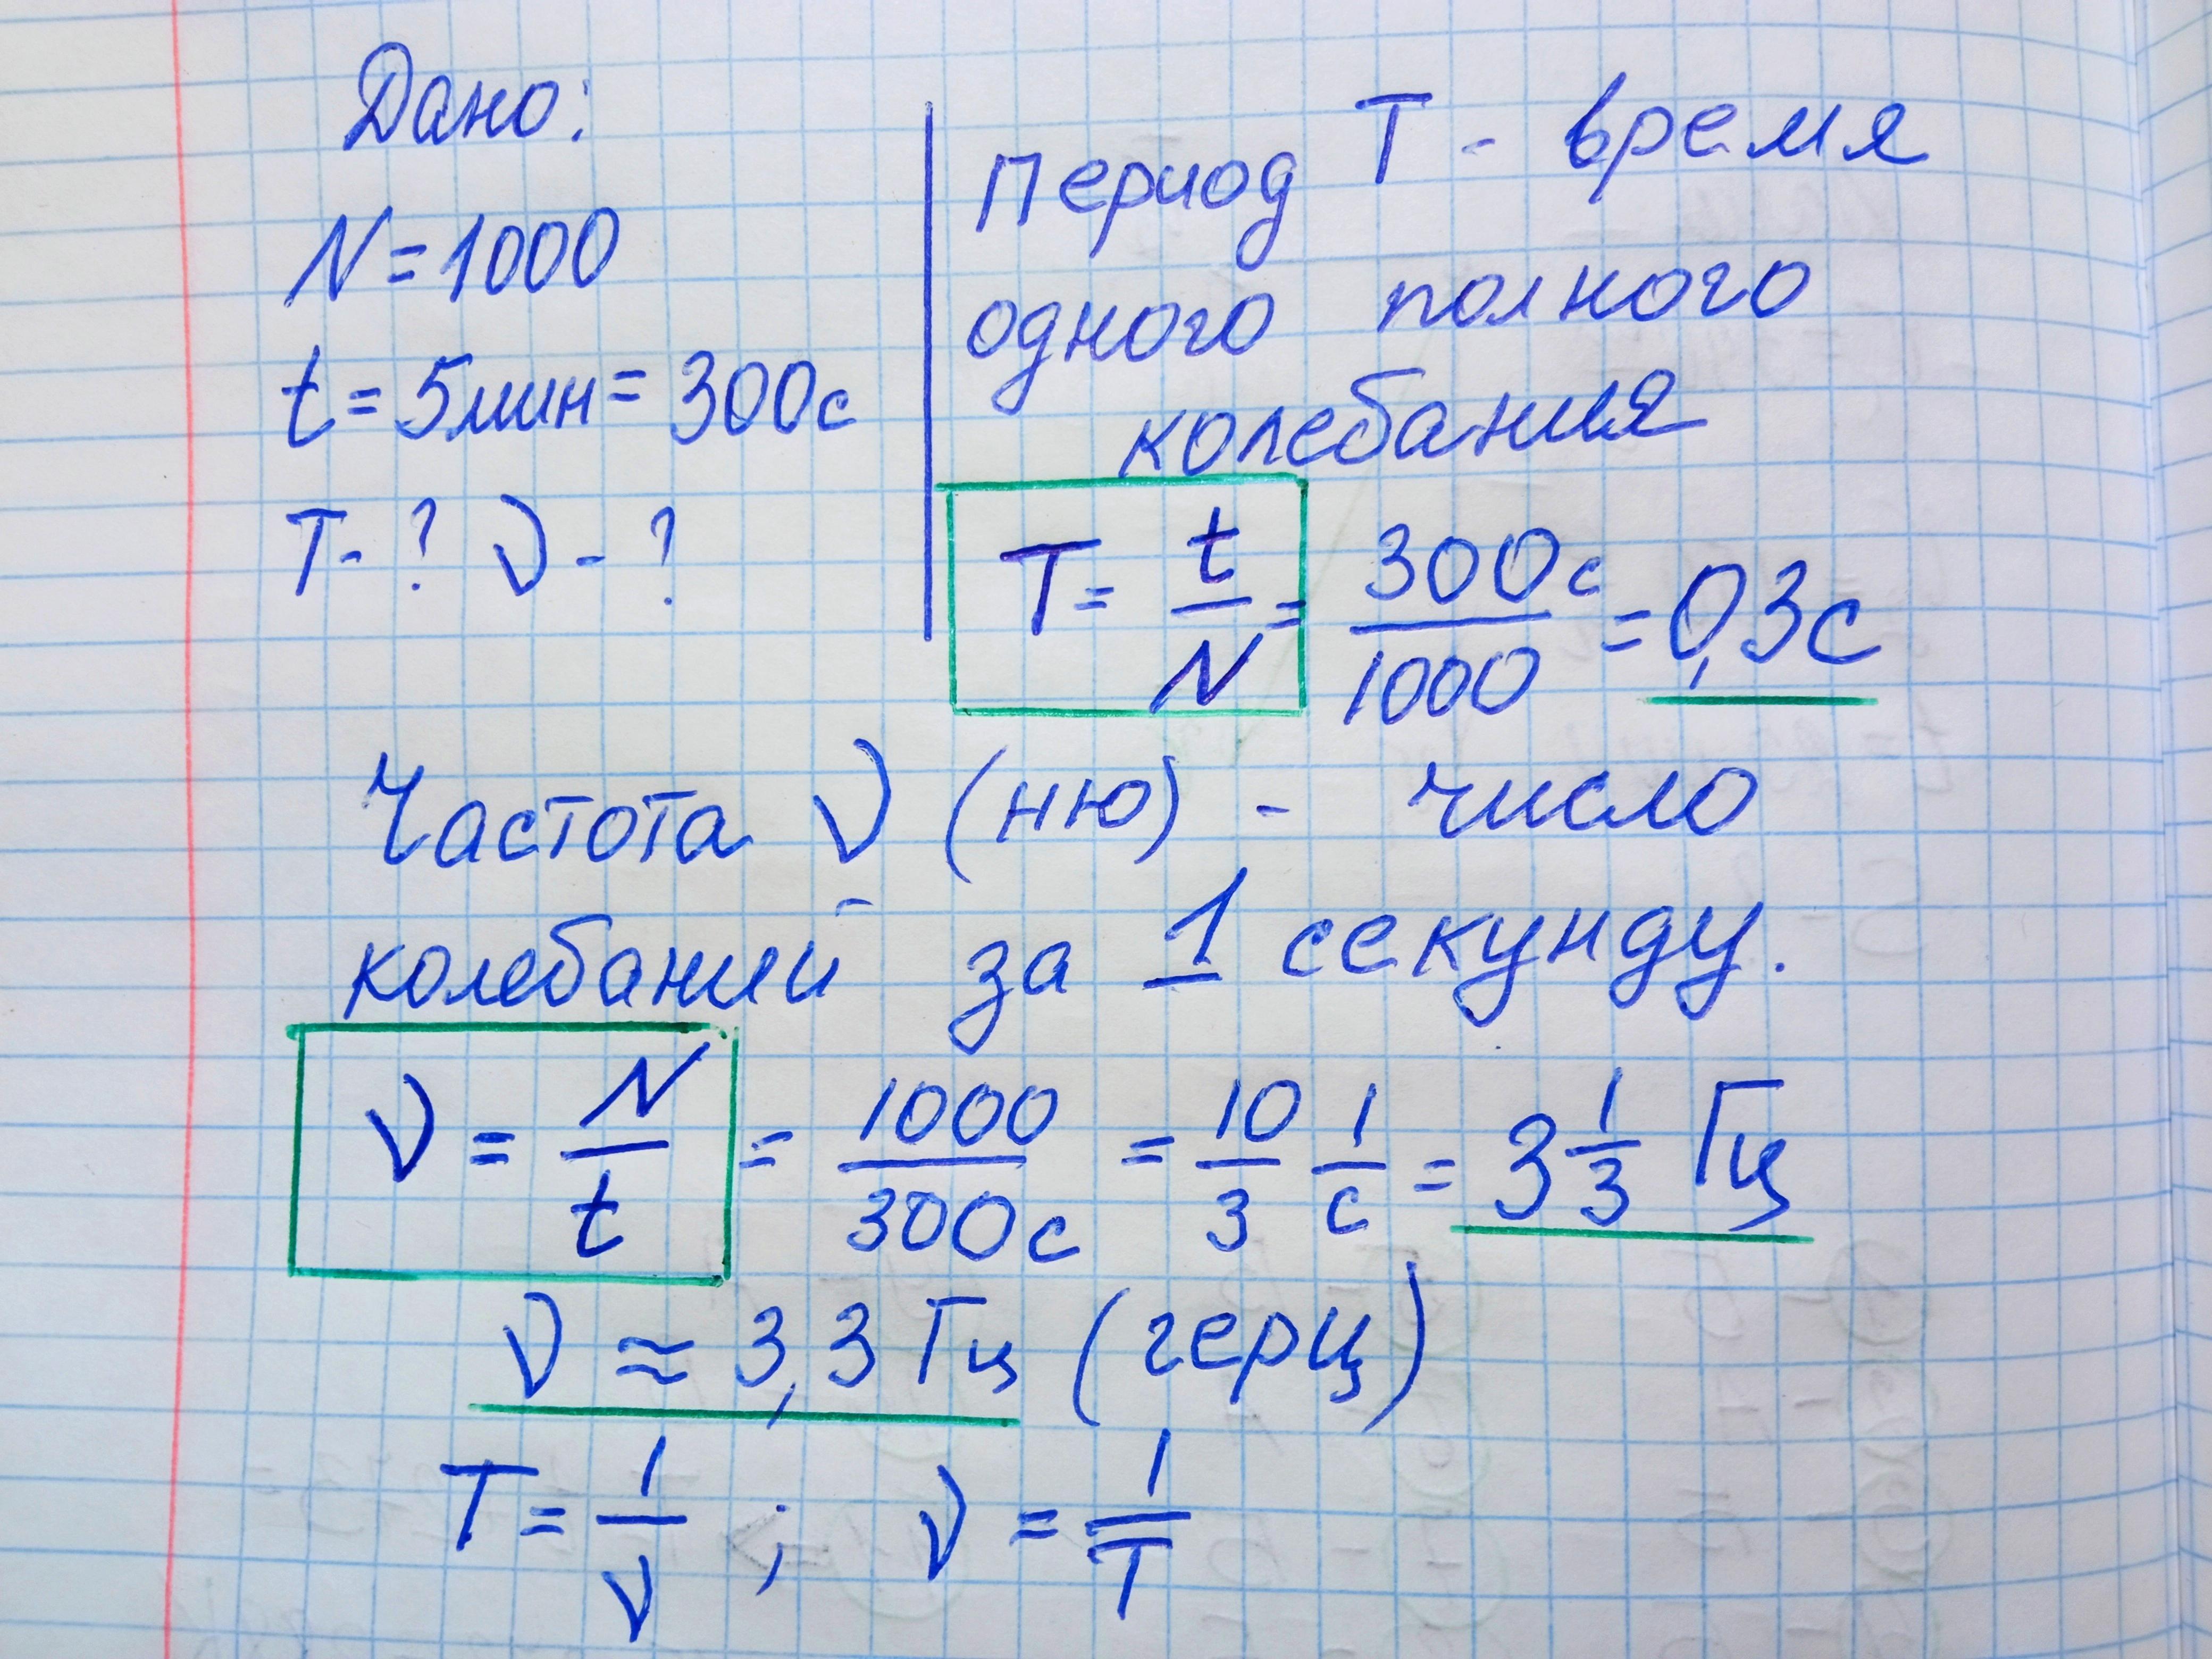 Дано:
N = 1000
t = 5мин = 300с
T - ? ν - ?
Период T - время
одного полного
колебания
T = t/N = 300с/1000 = 0,3с
Частота ν (ню) - число
колебаний за 1 секунду.
ν = N/t = 1000/300с = 10/3 1/с = 3 1/3 Гц
ν ≈ 3,3 Гц (герц)
T = 1/ν ; ν = 1/T